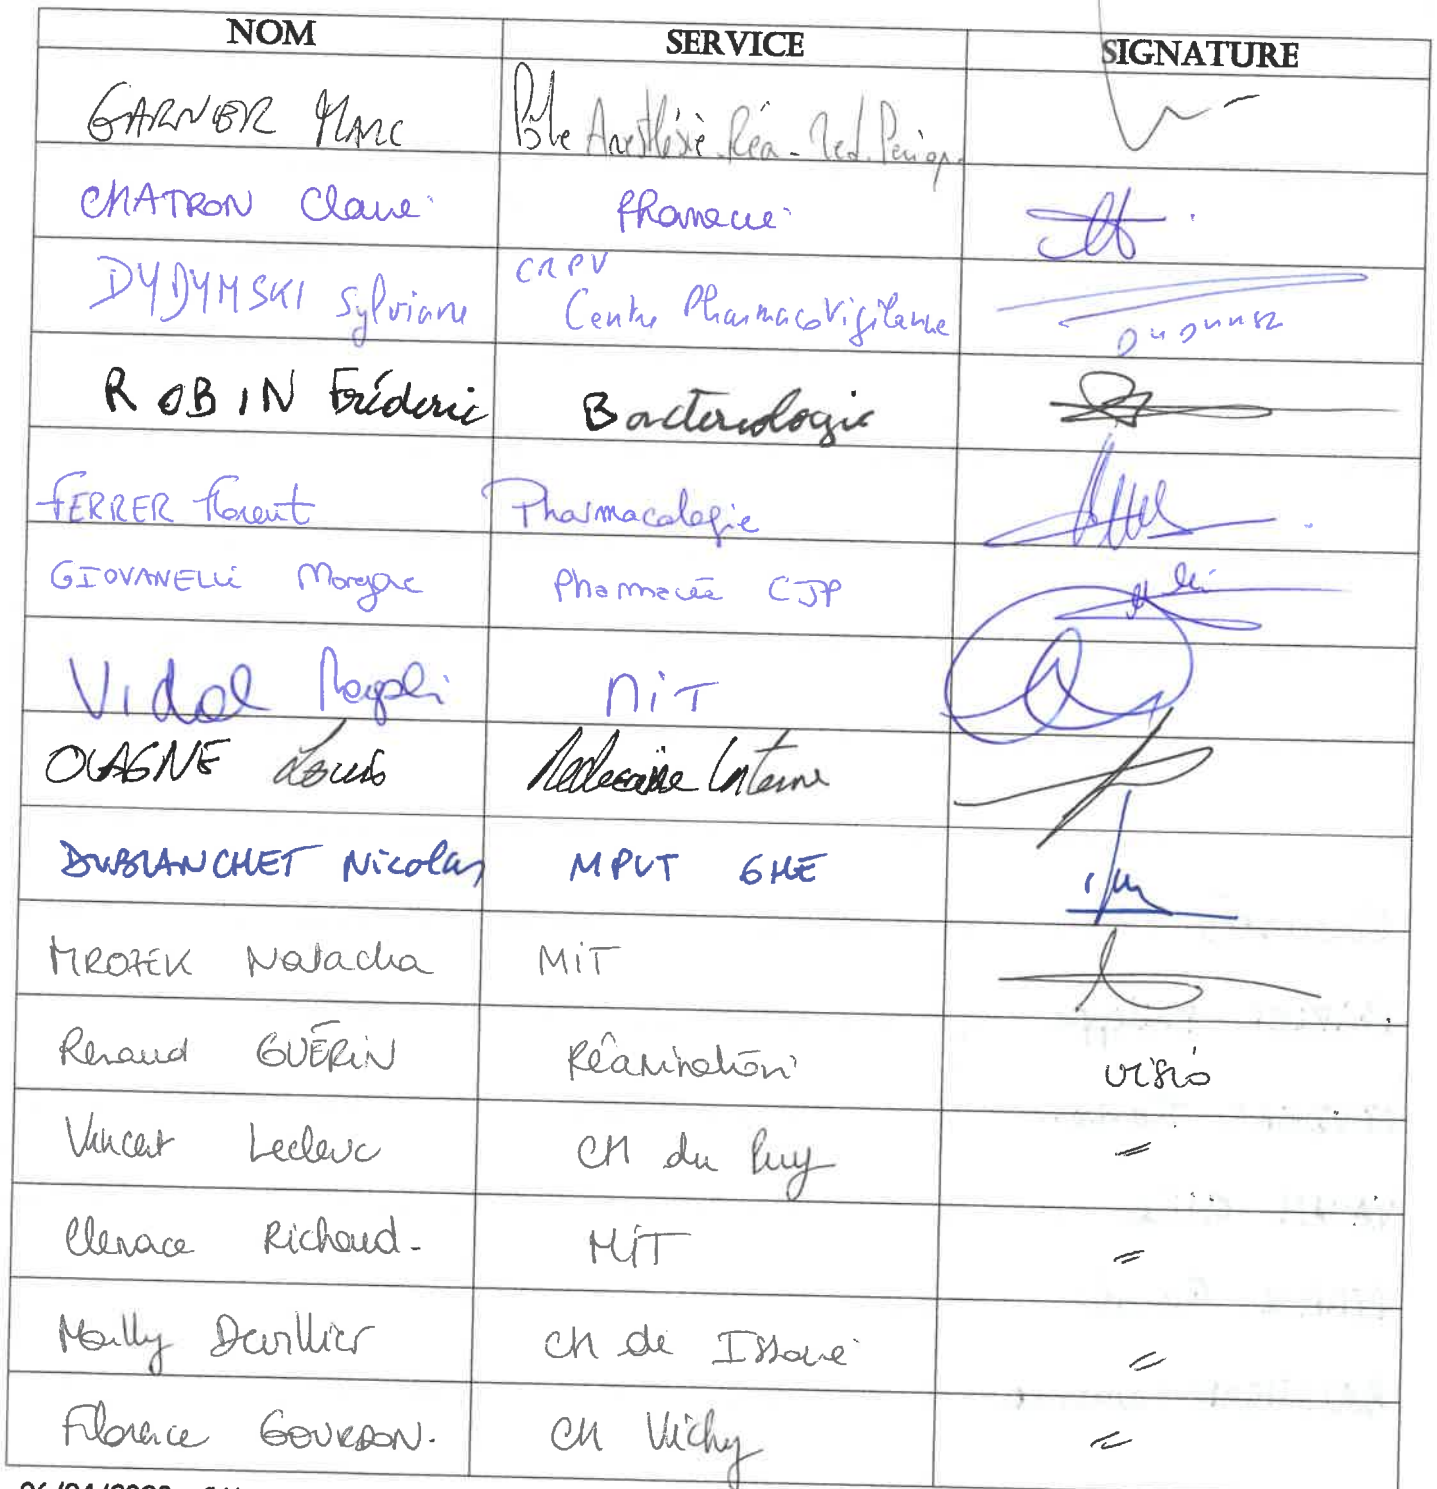 NOM SERVICE SIGNATURE
GARNIER Marc Pôle Anesthésie Réa - Med. Periop.
CHATRON Claire Pharmacie
DYDYMSKI Sylviane CRPV
Centre PharmacoVigilance
ROBIN Frédéric Bacteriologie
FERRER Florent Pharmacologie
GIOVANELLI Morgane Pharmacie CJP
Vidal Magali MiT
OLAGNE Louis Medecine Interne
DUBLANCHET Nicolas MPUT GHE
MROZEK Natacha MiT
Renaud GUÉRIN Réanimation visio
Vincent Leclerc CH du Puy =
Clemace Richaud. MiT =
CH de Issoire =
Florence GOURDON. CH Vichy =